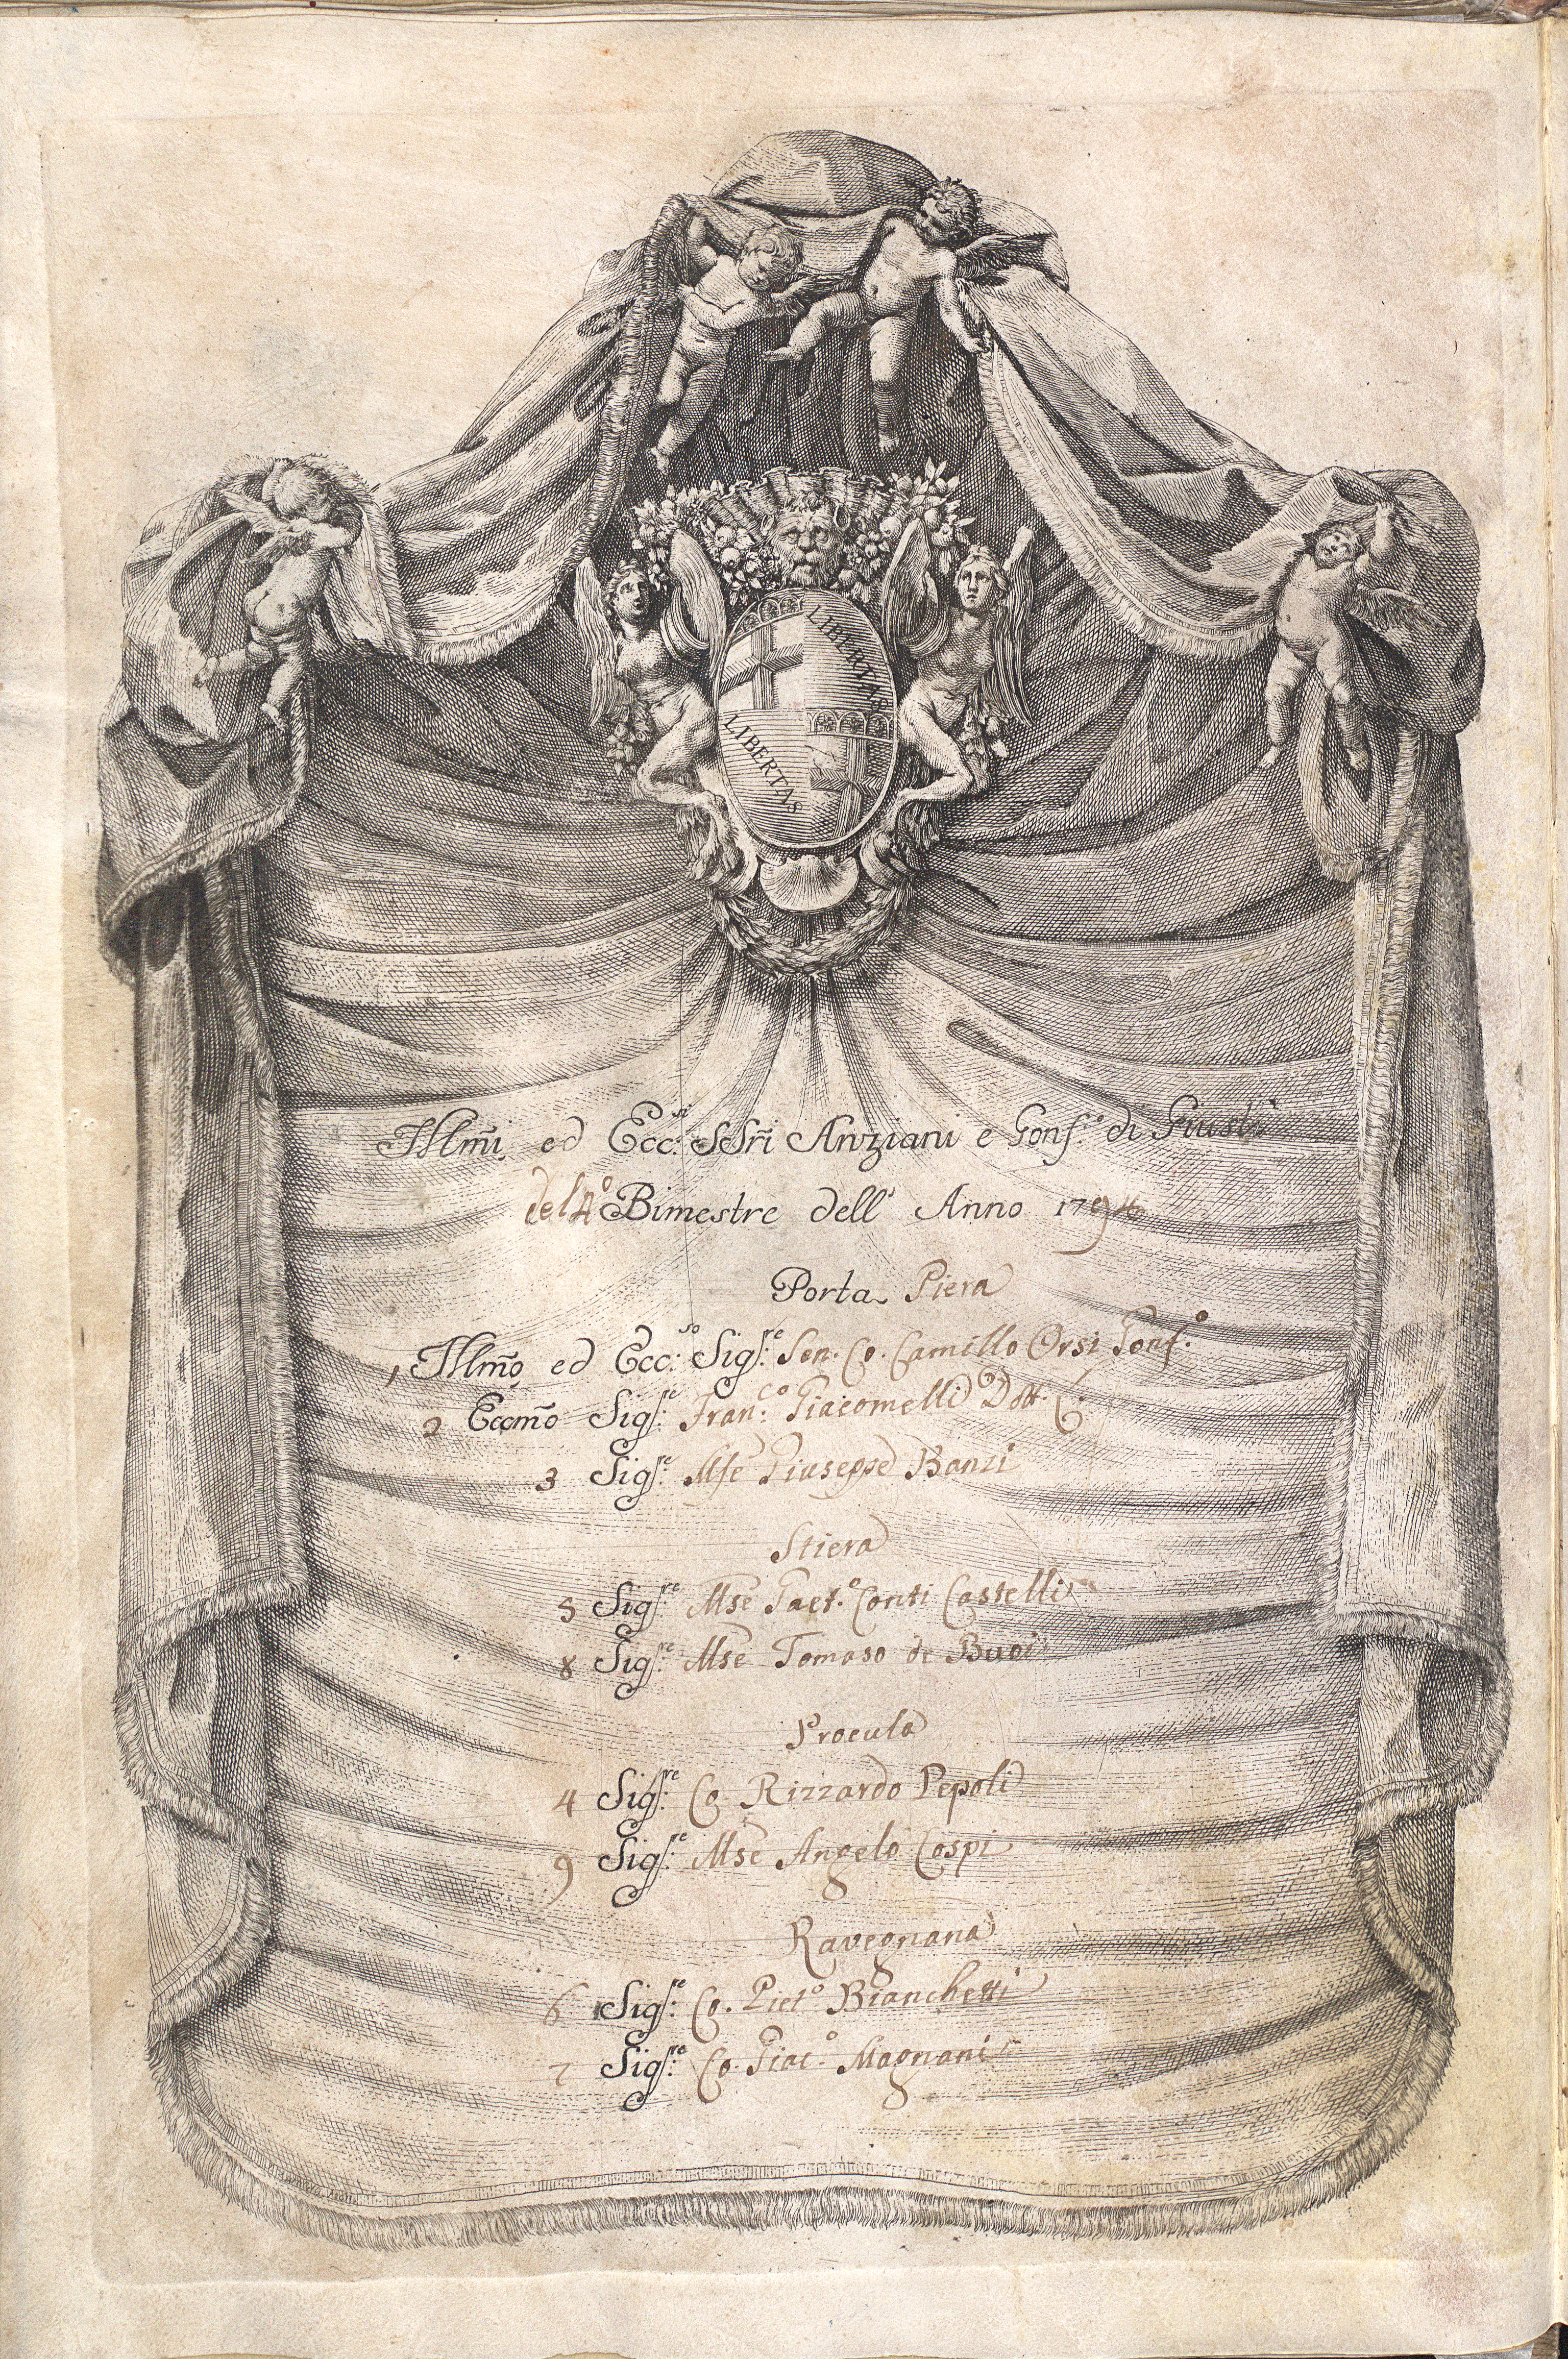 LIBERTAS
LIBERTAS
Illm̃i ed Ecc.si SSri Anziani e Gonf.e di Giust.a
del 4.o Bimestre dell' Anno 1794
Porta Piera
1 Illm̃o ed Ecc.so Sig.re Sen. Co. Camillo Orsi Gonf.o
2 Eccm̃o Sig.re Fran.co Giacomelli Dott. C.
3 Sig.re Mse Giuseppe Banzi
Stiera
5 Sig.re Mse Gaet.o Conti Castelli
8 Sig.re Mse Tomaso de Buoi
Procula
4 Sig.re Co. Rizzardo Pepoli
9 Sig.re Mse Angelo Cospi
Ravegnana
6 Sig.re Co. Piet.o Bianchetti
7 Sig.re Co. Giac.o Magnani